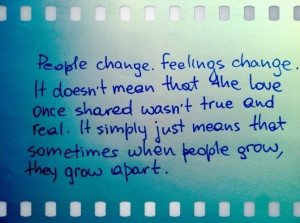 People change. feelings change.
It doesn't mean that the love
once shared wasn't true and
real. It simply just means that
sometimes when people grow,
they grow apart.